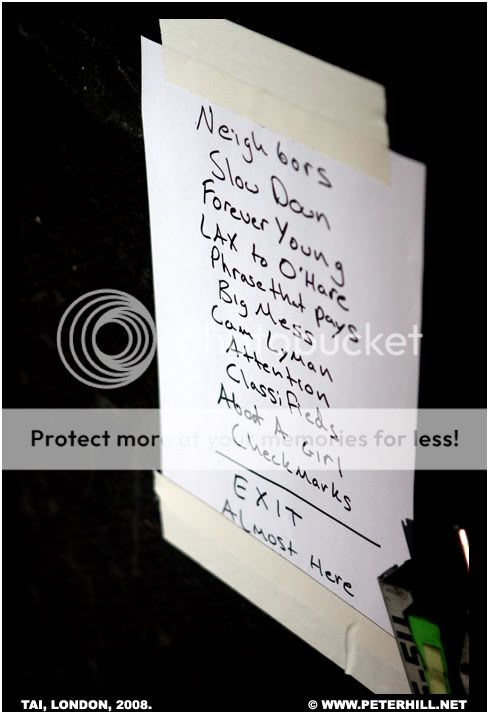 Neighbors
Slow Down
Forever Young
LAX to O'Hare
Phrase that pays
Big Mess
Cam Lyman
Attention
Classifieds
About A Girl
Checkmarks
EXIT
Almost Here
photobucket
Protect more of your memories for less!
TAI, LONDON, 2008.
© WWW.PETERHILL.NET